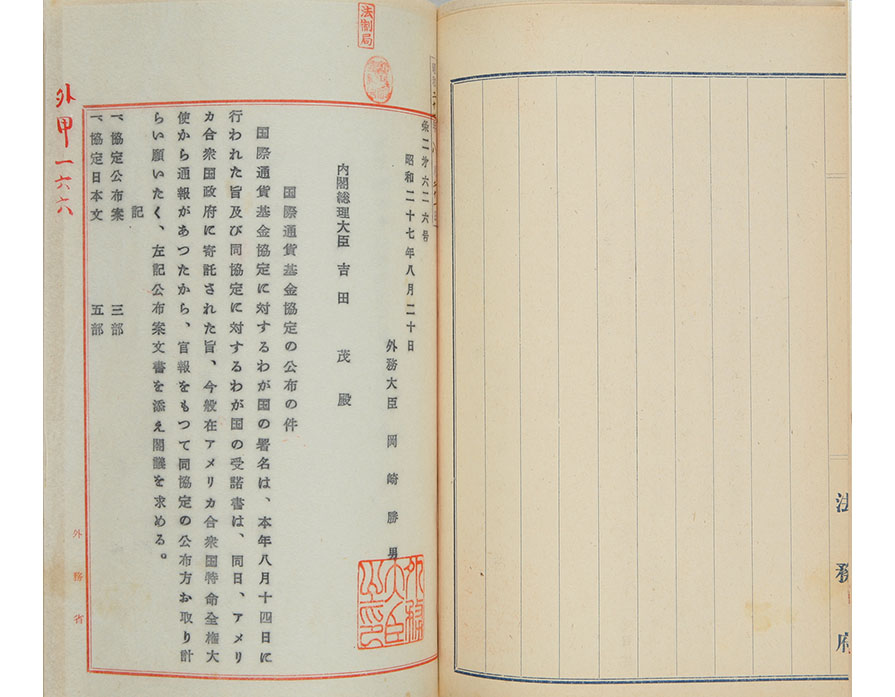 法務府
法制局
条二第六二六号
昭和二十七年八月二十日
外務大臣 岡崎勝男
外務大臣之印
内閣総理大臣 吉田 茂 殿
国際通貨基金協定の公布の件
国際通貨基金協定に対するわが国の署名は、本年八月十四日に
行われた旨及び同協定に対するわが国の受諾書は、同日、アメリ
カ合衆国政府に寄託された旨、今般在アメリカ合衆国特命全権大
使から通報があつたから、官報をもつて同協定の公布方お取り計
らい願いたく、左記公布案文書を添え閣議を求める。
記
一、協定公布案 三部
一、協定日本文 五部
外甲一六六
外務省